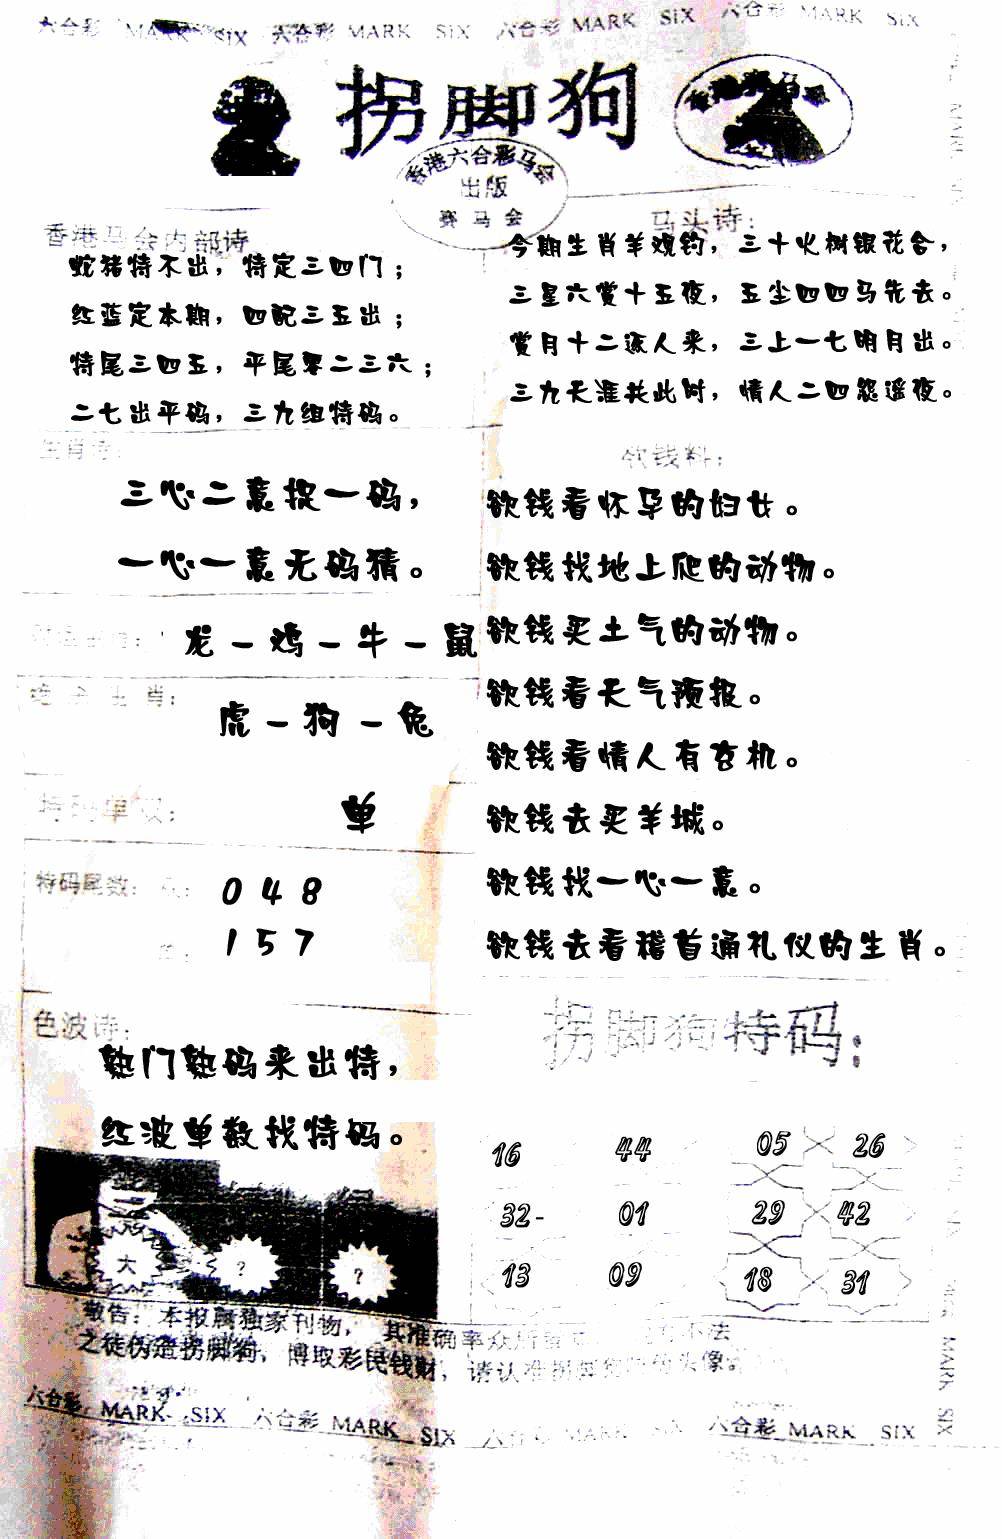 六合彩 MARK SIX 六合彩 MARK SIX 六合彩 MARK SIX 六合彩 MARK SIX
拐脚狗
香港六合彩马会
出版
赛马会
香港马会内部诗
蛇猪特不出，特定三四门；
红蓝定本期，四配三五出；
特尾三四五，平尾零二三六；
二七出平码，三九组特码。
马头诗：
今期生肖羊观钓，三十火树银花合，
三星六赏十五夜，五尘四四马先去。
赏月十二逐人来，三上一七明月出。
三九天涯共此时，情人二四怨遥夜。
生肖诗：
三心二意捉一码，
一心一意无码猜。
龙－鸡－牛－鼠
生肖：
虎－狗－兔
特码单双：
单
特码尾数：
0 4 8
1 5 7
色波诗：
熟门熟码来出特，
红波单数找特码。
大
?
?
欲钱料：
欲钱看怀孕的妇女。
欲钱找地上爬的动物。
欲钱买土气的动物。
欲钱看天气预报。
欲钱看情人有玄机。
欲钱去买羊城。
欲钱找一心一意。
欲钱去看稽首通礼仪的生肖。
拐脚狗特码：
16 44 05 26
32- 01 29 42
13 09 18 31
敬告：本报属独家刊物，其准确率众所 不法
之徒伪造拐脚狗，博取彩民钱财，请认准拐脚 头像。
六合彩 MARK SIX 六合彩 MARK SIX 六合彩 MARK SIX 六合彩 MARK SIX
MARK SIX